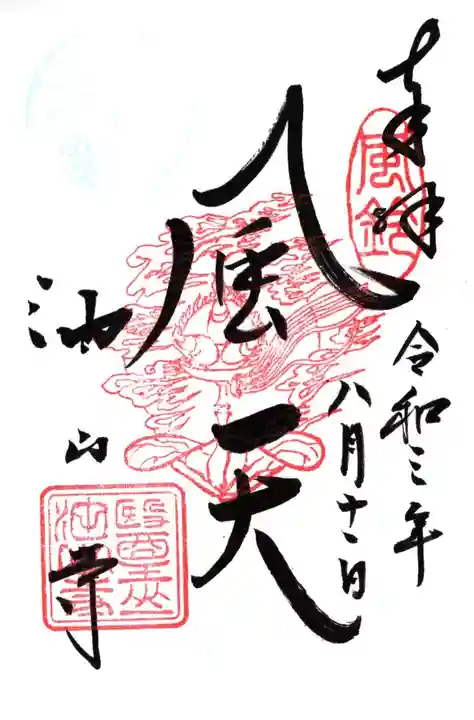 奉拝
令和三年
八月十一日
風天
池山寺
風鈴